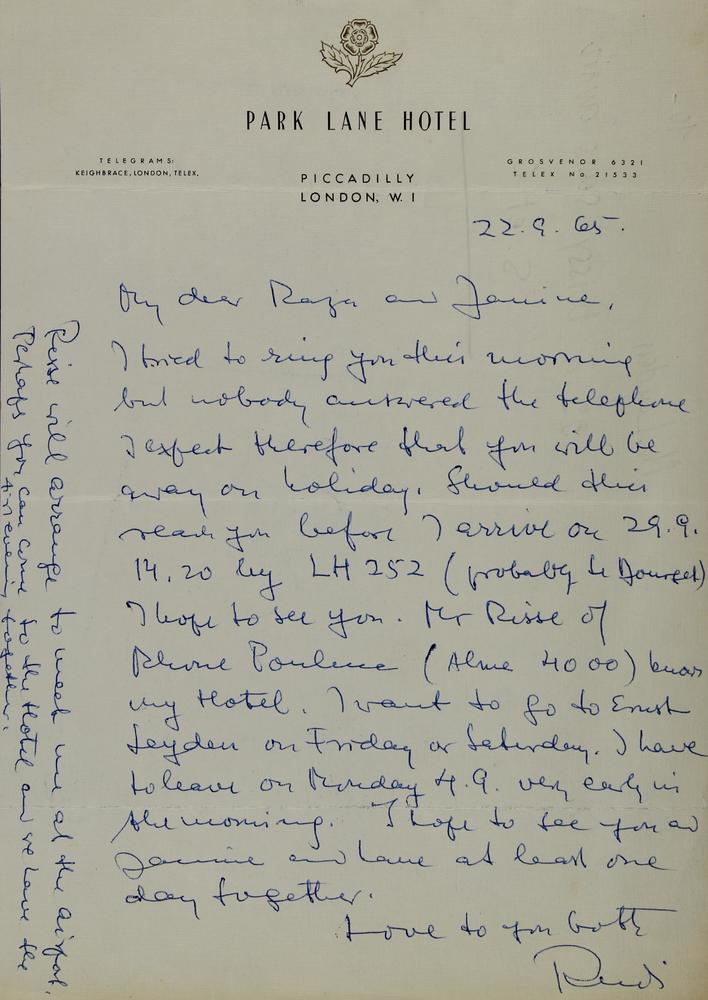 PARK LANE HOTEL
TELEGRAMS:
KEIGHBRACE, LONDON, TELEX.
PICCADILLY
LONDON, W. 1
GROSVENOR 6321
TELEX No. 21533
22.9.65.
My dear Raza and Janine,
I tried to ring you this morning
but nobody answered the telephone
I expect therefore that you will be
away on holiday. Should this
reach you before I arrive on 29.9.
14.20 by LH 252 (probably Le Bourget)
I hope to see you. Mr Risse of
Rhone Poulenc (Alma 4000) knows
my Hotel. I want to go to Ernst
Leyden on Friday or Saturday. I have
to leave on Monday 4.9. very early in
the morning. I hope to see you and
Janine and have at least one
day together.
Love to you both
Rudi
Risse will arrange to meet me at the airport.
Perhaps you can come to the Hotel and we have the
evening together.